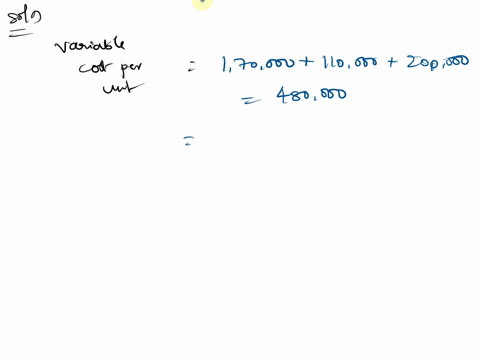 soln
variable
cost per = 1,70,000 + 110,000 + 200,000
unit
= 480,000
=